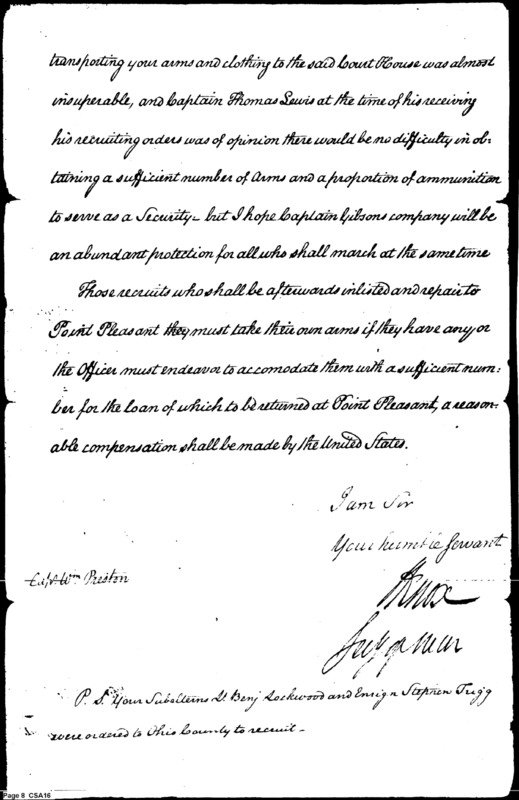 transporting your arms and clothing to the said Court House was almost
insuperable, and Captain Thomas Lewis at the time of his receiving
his recruiting orders was of opinion there would be no difficulty in ob:
taining a sufficient number of Arms and a proportion of ammunition
to serve as a Security – but I hope Captain Gibsons company will be
an abundant protection for all who shall march at the same time
Those recruits who shall be afterwards inlisted and repair to
Point Pleasant they must take their own arms if they have any, or
the Officer must endeavor to accomodate them with a sufficient num:
ber for the loan of which to be returned at Point Pleasant, a reason:
able compensation shall be made by the United States.
I am Sir
Your humble Servant
Capt. Wm Preston
H Knox
Secy of War
P. S. Your Subalterns Lt Benj Lockwood and Ensign Stephen Trigg
were ordered to Ohio County to recruit –
Page 8 CSA16